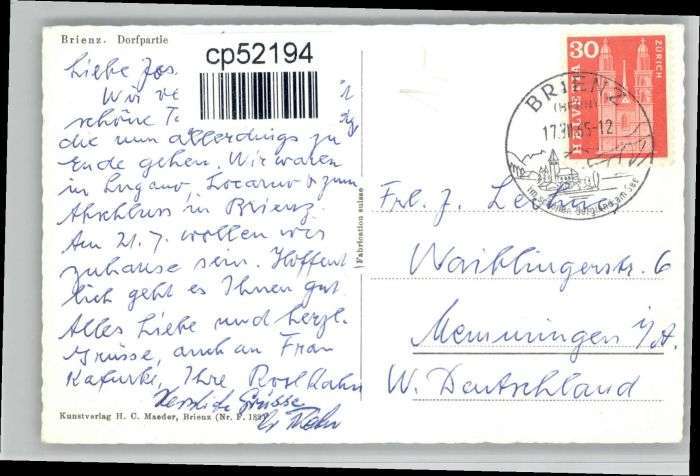 Brienz. Dorfpartie
cp52194
Liebe Jos.
Wir
schöne
die nun allerdings zu
Ende gehen. Wir waren
in Lugano, Locarno & zum
Abschluss in Brienz.
Am 21.7. wollen wir
zuhause sein. Hoffent
lich geht es Ihnen gut.
Alles Liebe und herzl.
Grüsse, auch an Frau
Ihre
Herzliche Grüsse
Kunstverlag H. C. Maeder, Brienz (Nr. F.
Fabrication suisse
30
HELVETIA
ZÜRICH
BRIENZ
(BERN)
-12
im schönen Bergland am See
Frl. J.
Waiblingerstr. 6
Memmingen i/A.
W. Deutschland